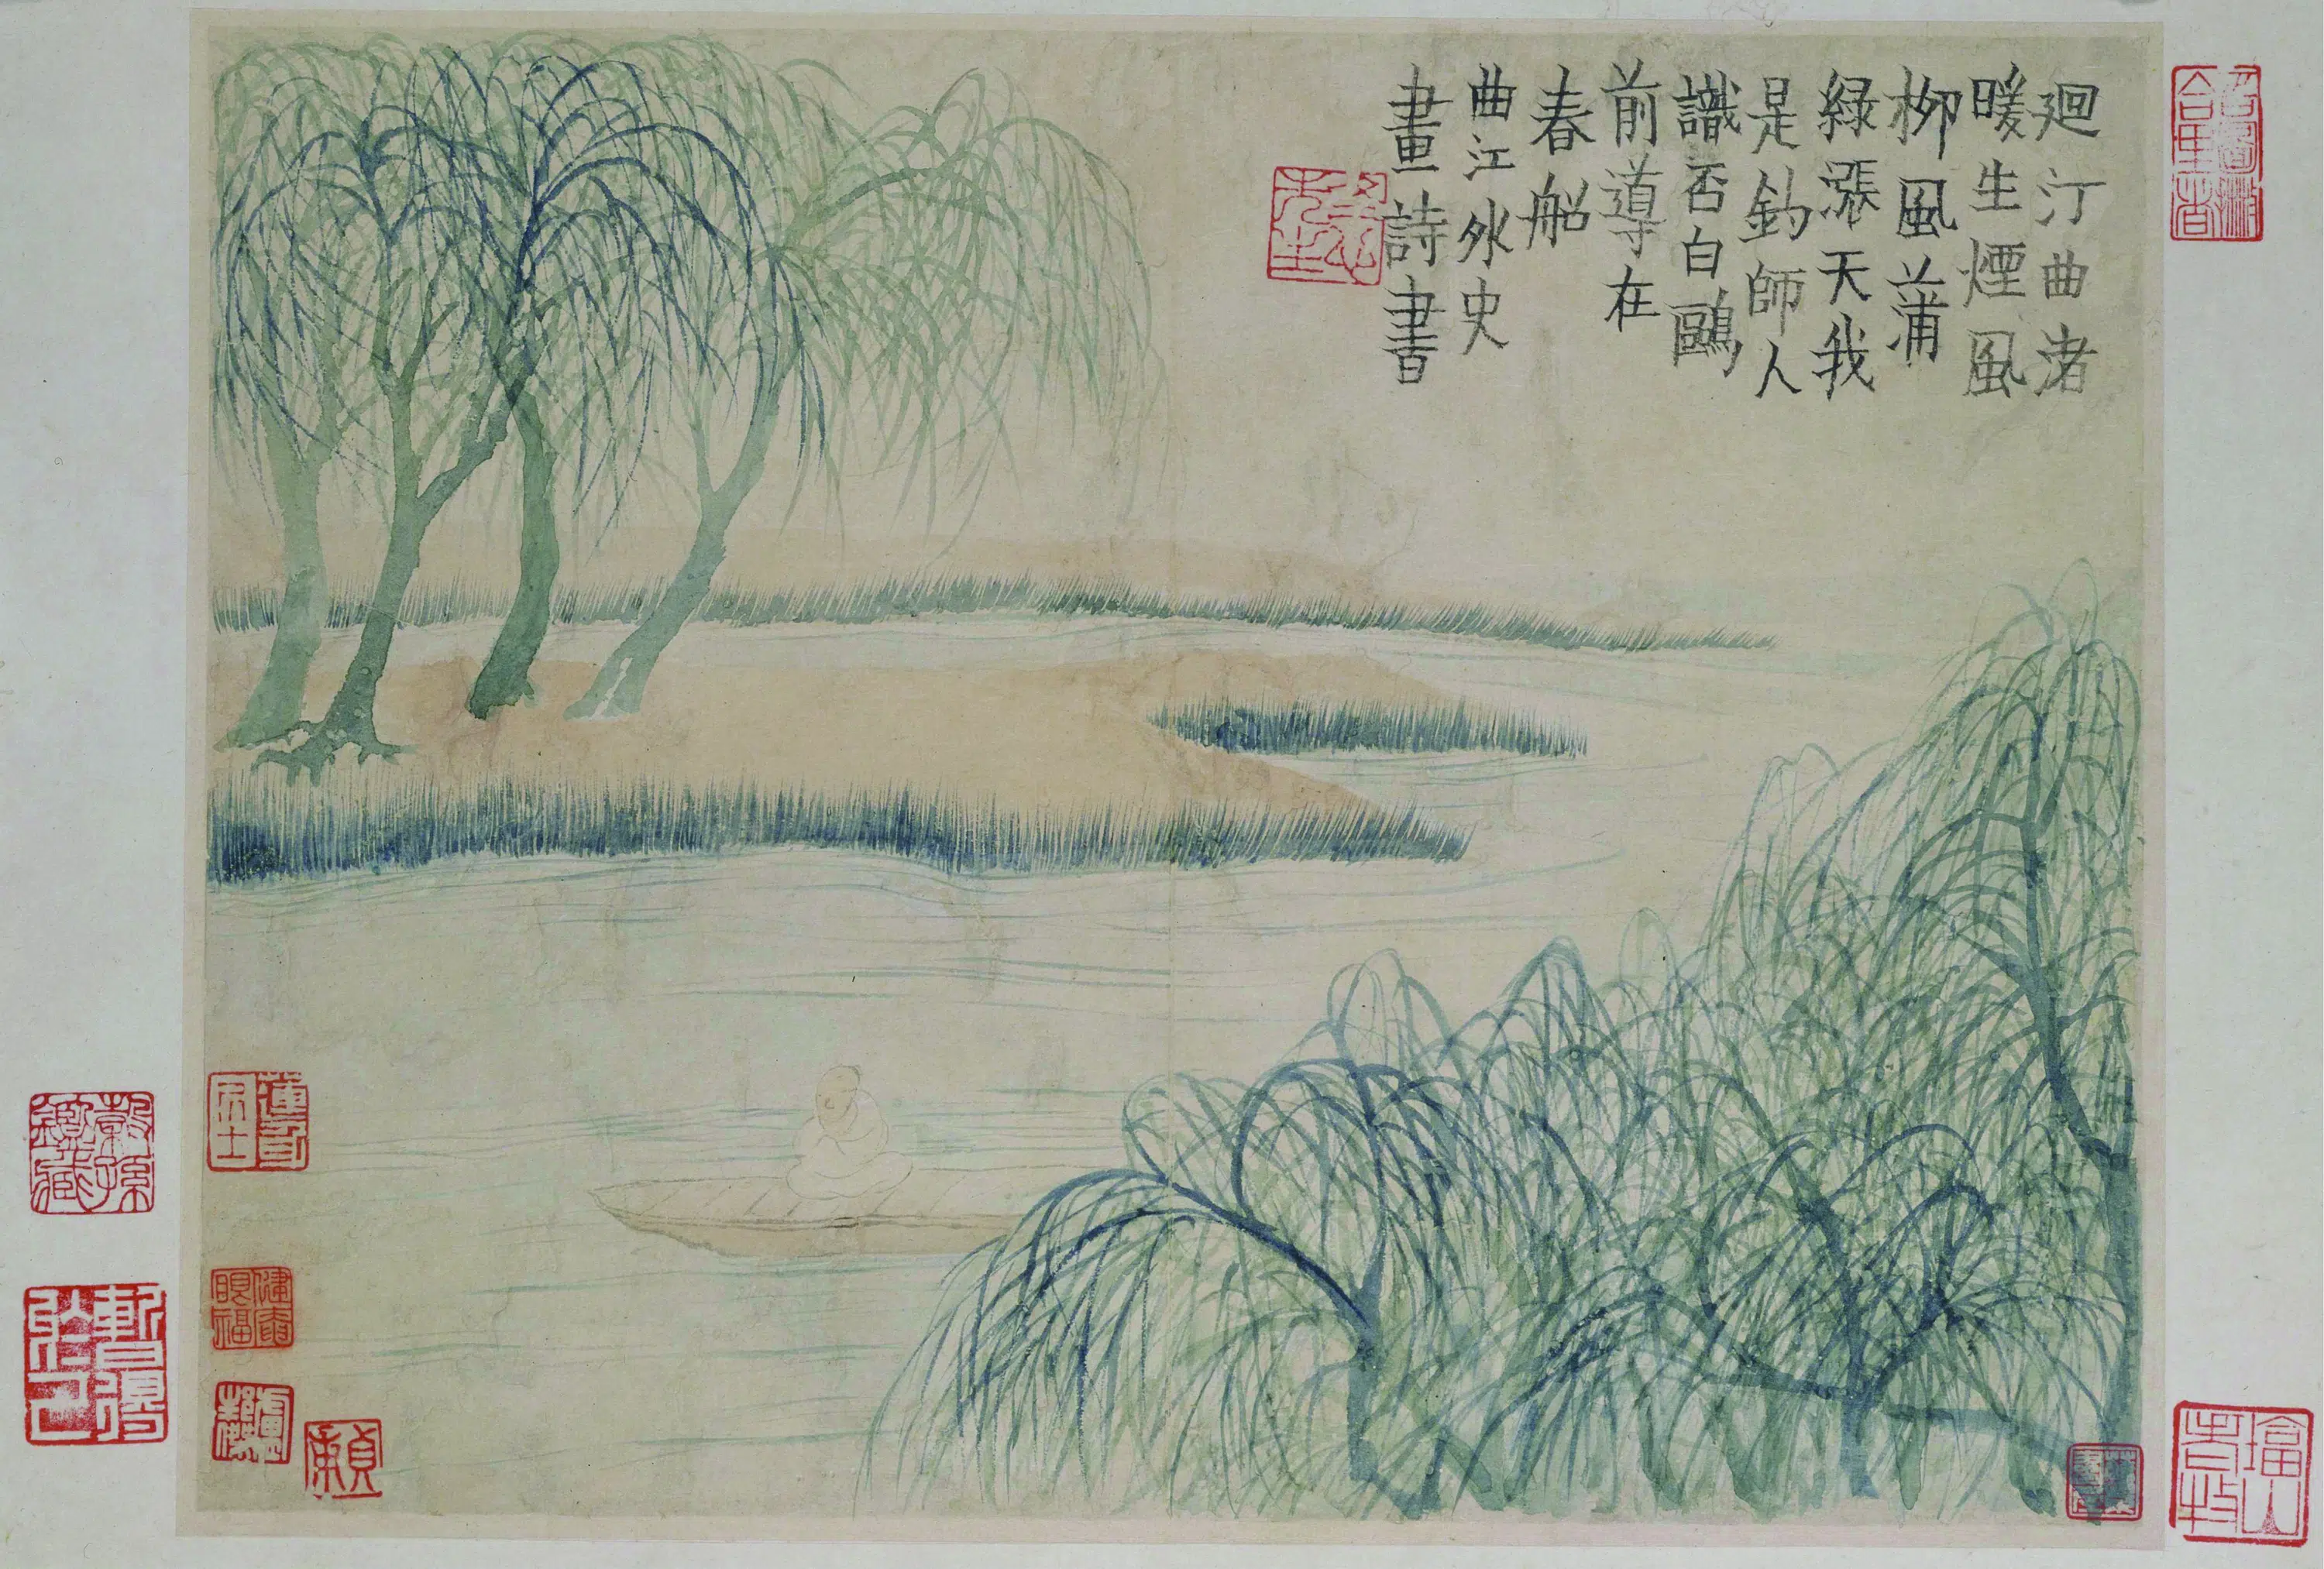 廻汀曲渚
暖生煙風
柳風蒲
綠漲天我
是釣師人
識否白鷗
前導在
春船
曲江外史
畫詩書
冬心先生
蓮身居士